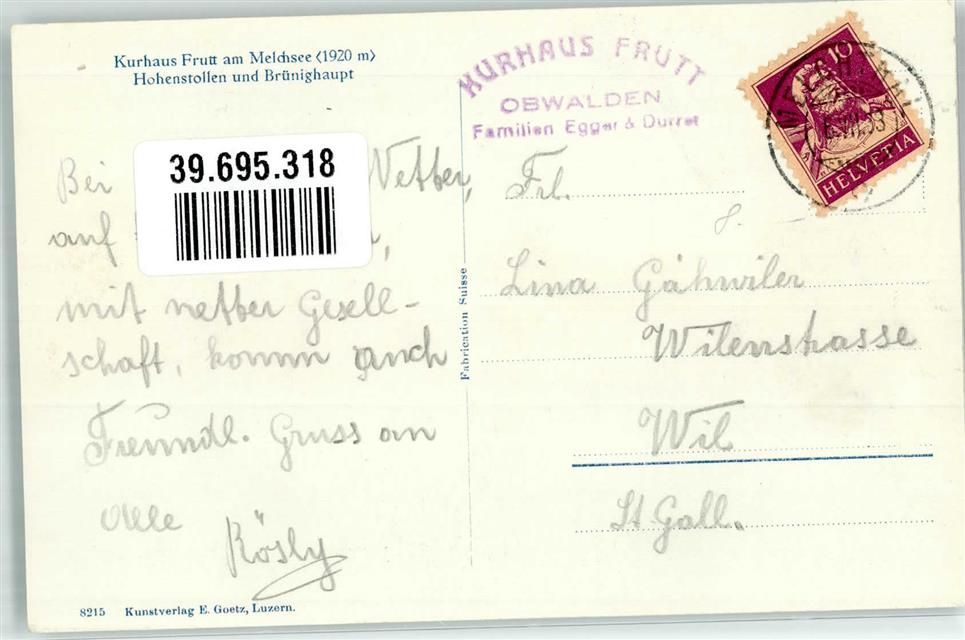 Kurhaus Frutt am Melchsee (1920 m)
Hohenstollen und Brünighaupt
KURHAUS FRUTT
OBWALDEN
Familien Egger & Durrer
10
HELVETIA
39.695.318
Bei Wetter,
auf
mit netter Gesell-
schaft, komm auch
Freundl. Gruss an
Alle
Rösly
Frl.
Lina Gähwiler
Wilenstrasse
Wil
St Gall.
Fabrication Suisse
8215 Kunstverlag E. Goetz, Luzern.